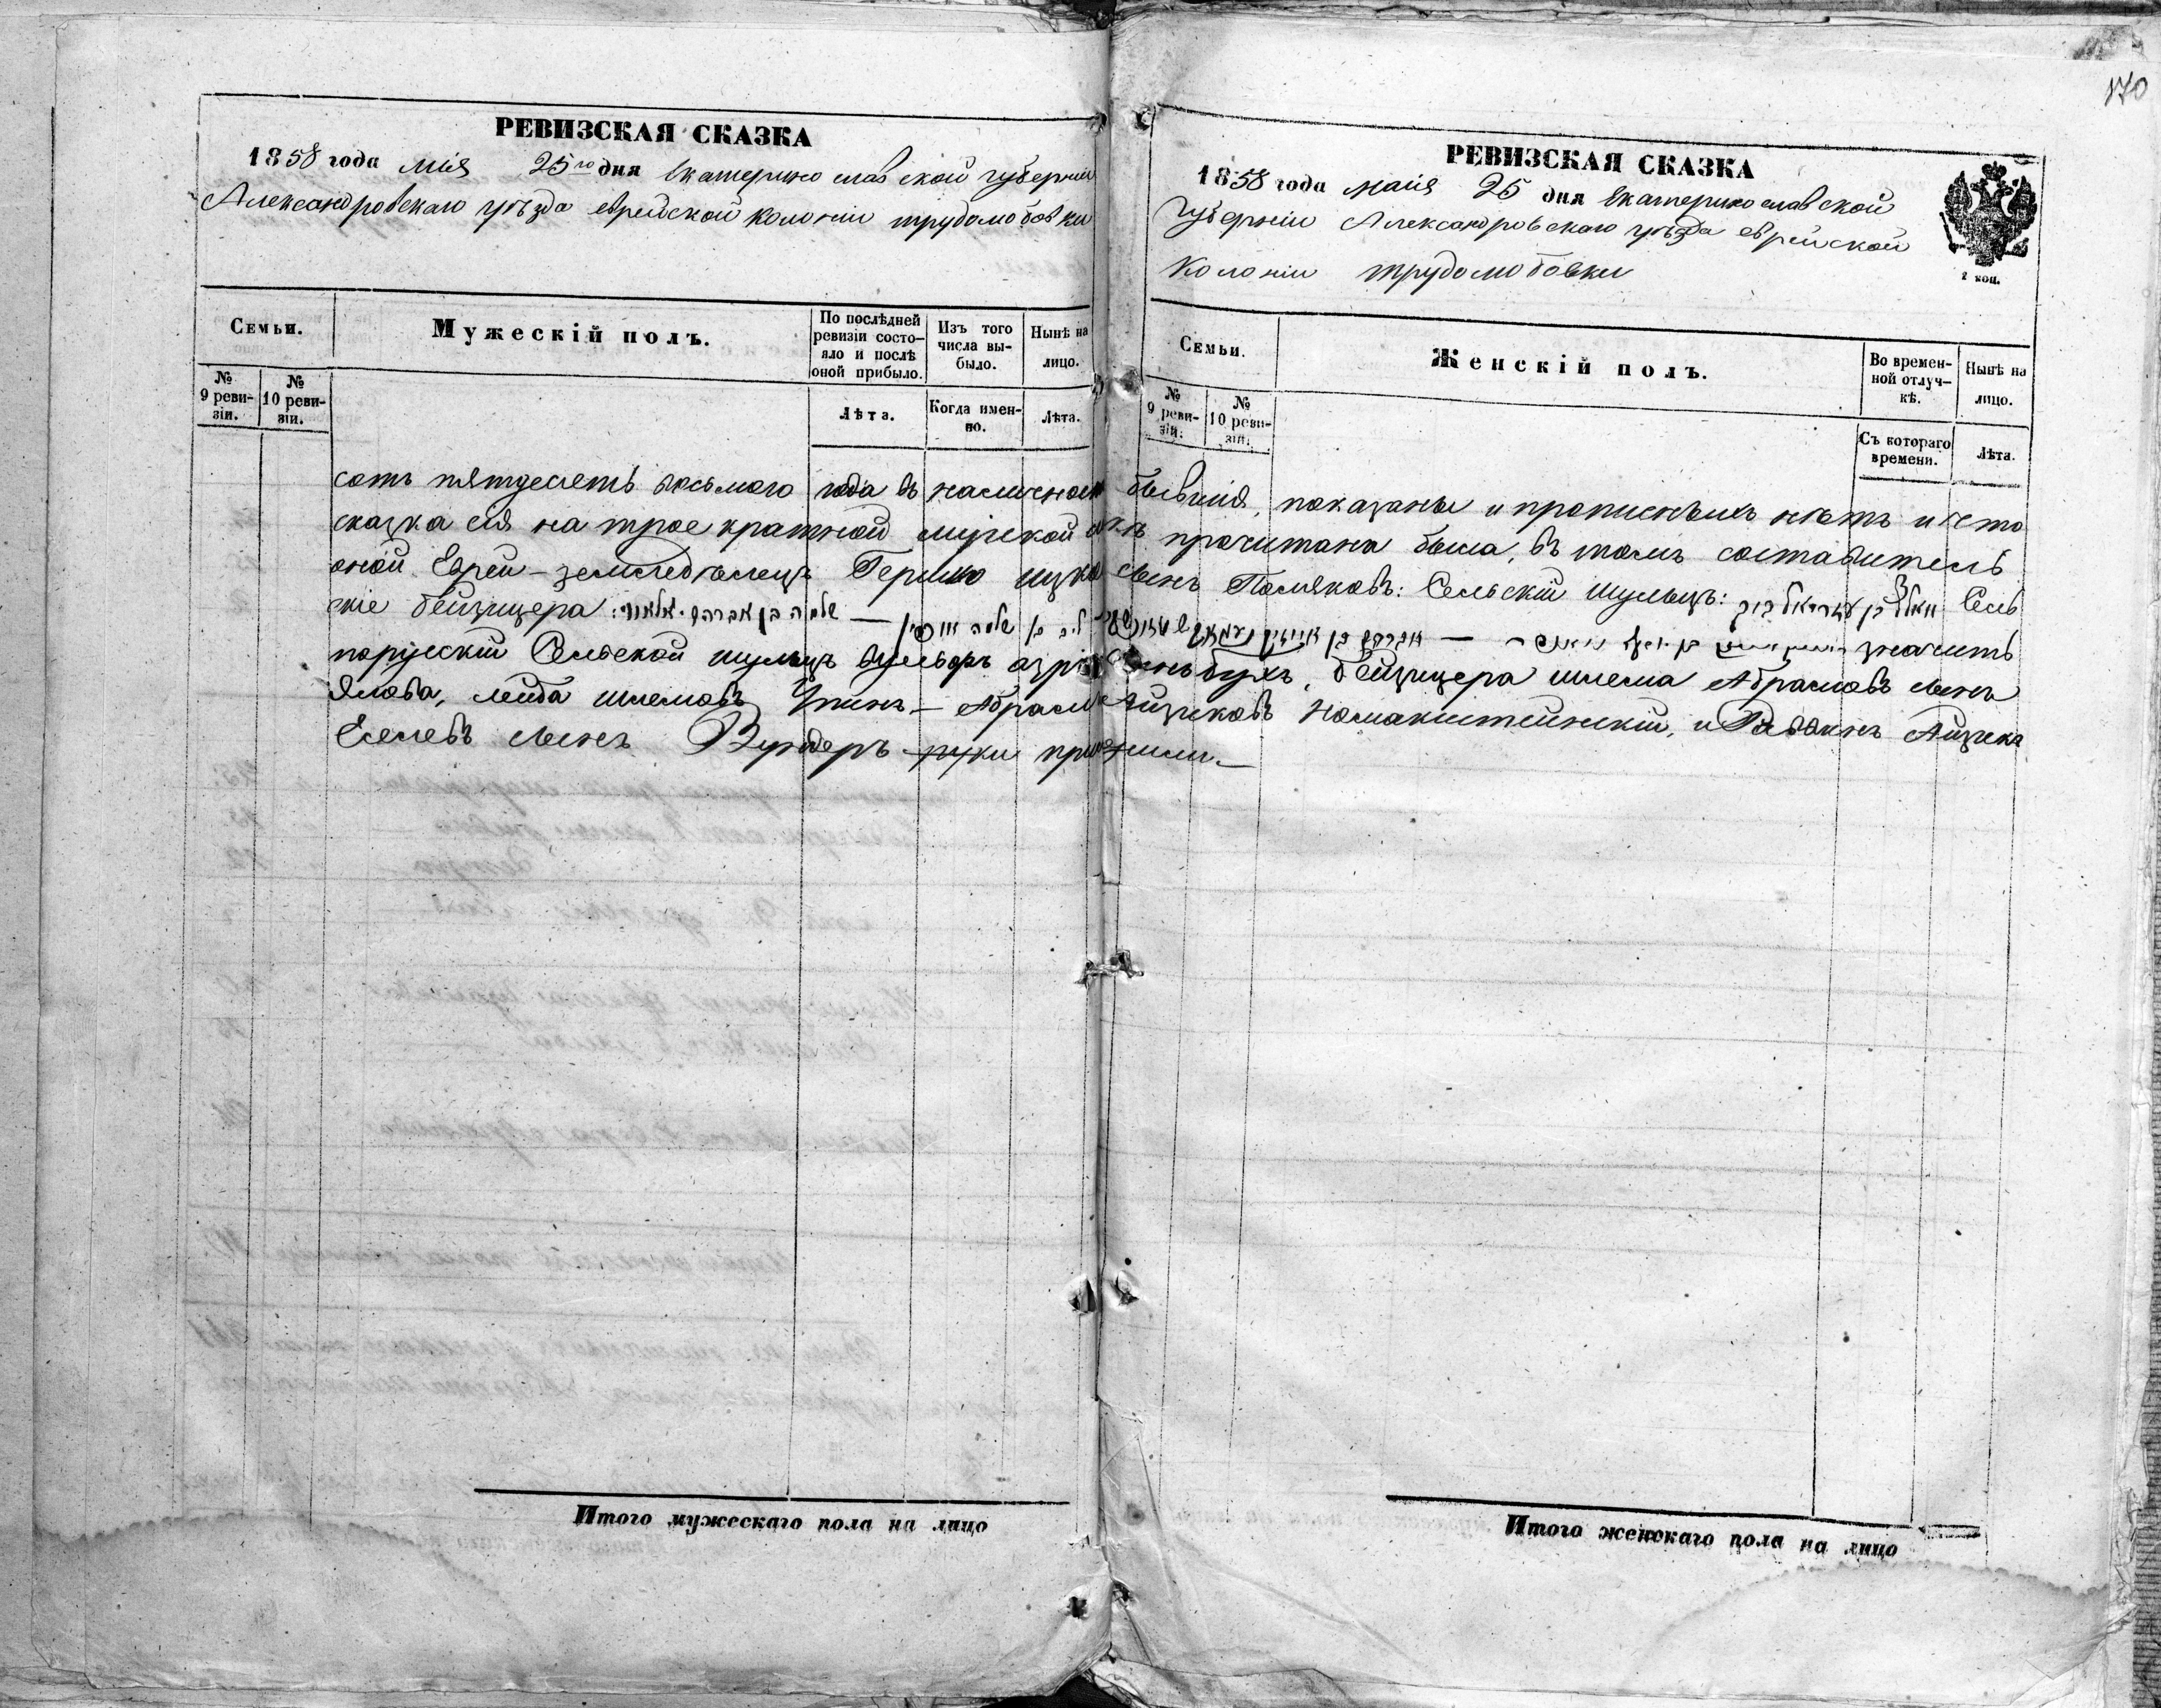 170
РЕВИЗСКАЯ СКАЗКА
1858 года Мая 25го дня Екатеринославской губерніи
Александровскаго уѣзда еврейской колоніи трудолюбовки
Семьи.
Мужескій полъ.
По послѣдней ревизіи состояло и послѣ оной прибыло.
Изъ того числа выбыло.
Нынѣ на лицо.
№ 9 ревизіи.
№ 10 ревизіи.
Лѣта.
Когда именно.
Лѣта.
РЕВИЗСКАЯ СКАЗКА
1858 года маія 25 дня Екатеринославской
губерніи Александровскаго уѣзда еврейской
колоніи трудолюбовки
2 коп.
Семьи.
Женскій полъ.
Во временной отлучкѣ.
Нынѣ на лицо.
№ 9 ревизіи.
№ 10 ревизіи.
Съ котораго времени.
Лѣта.
сотъ пятдесятъ восьмого года въ наличном бывшія, показаны и прописныхъ нѣтъ и что
сказка сія на трое кратной мірской прочитана была, въ томъ составитель
оной Еврей-земледѣлецъ Гершко Поляковъ: Сельскій Шульцъ: Сель
скіе бейзицера: שלמה בן אברהם — значитъ
порусскій Сельской шульцъ бухъ, бейзицера шлема Абрамовъ
лейба шлемовъ — Абрам Айзиковъ и Айзикъ
Вундеръ руки приложили.
Итого мужескаго пола на лицо
Итого женскаго пола на лицо